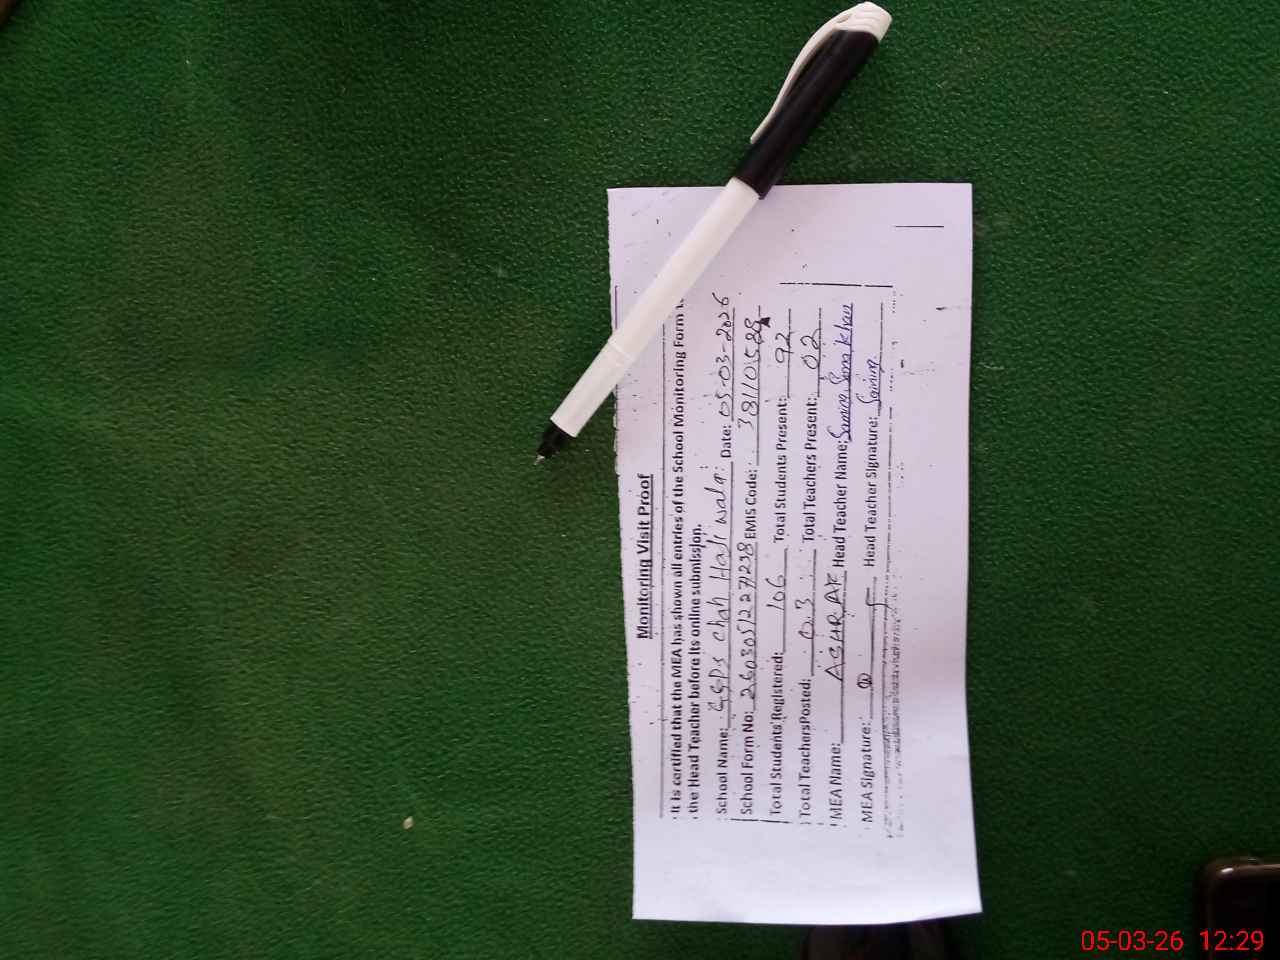 Monitoring Visit Proof
It is certified that the MEA has shown all entries of the School Monitoring Form
the Head Teacher before its online submission.
School Name: GGPS Chah Haji wala Date: 05-03-2026
School Form No: 26030512271298 EMIS Code: 38110588
Total Students Registered: 106 Total Students Present: 92
Total TeachersPosted: 03 Total Teachers Present: 02
MEA Name: ASHRAF Head Teacher Name: khan
MEA Signature: Head Teacher Signature:
05-03-26 12:29